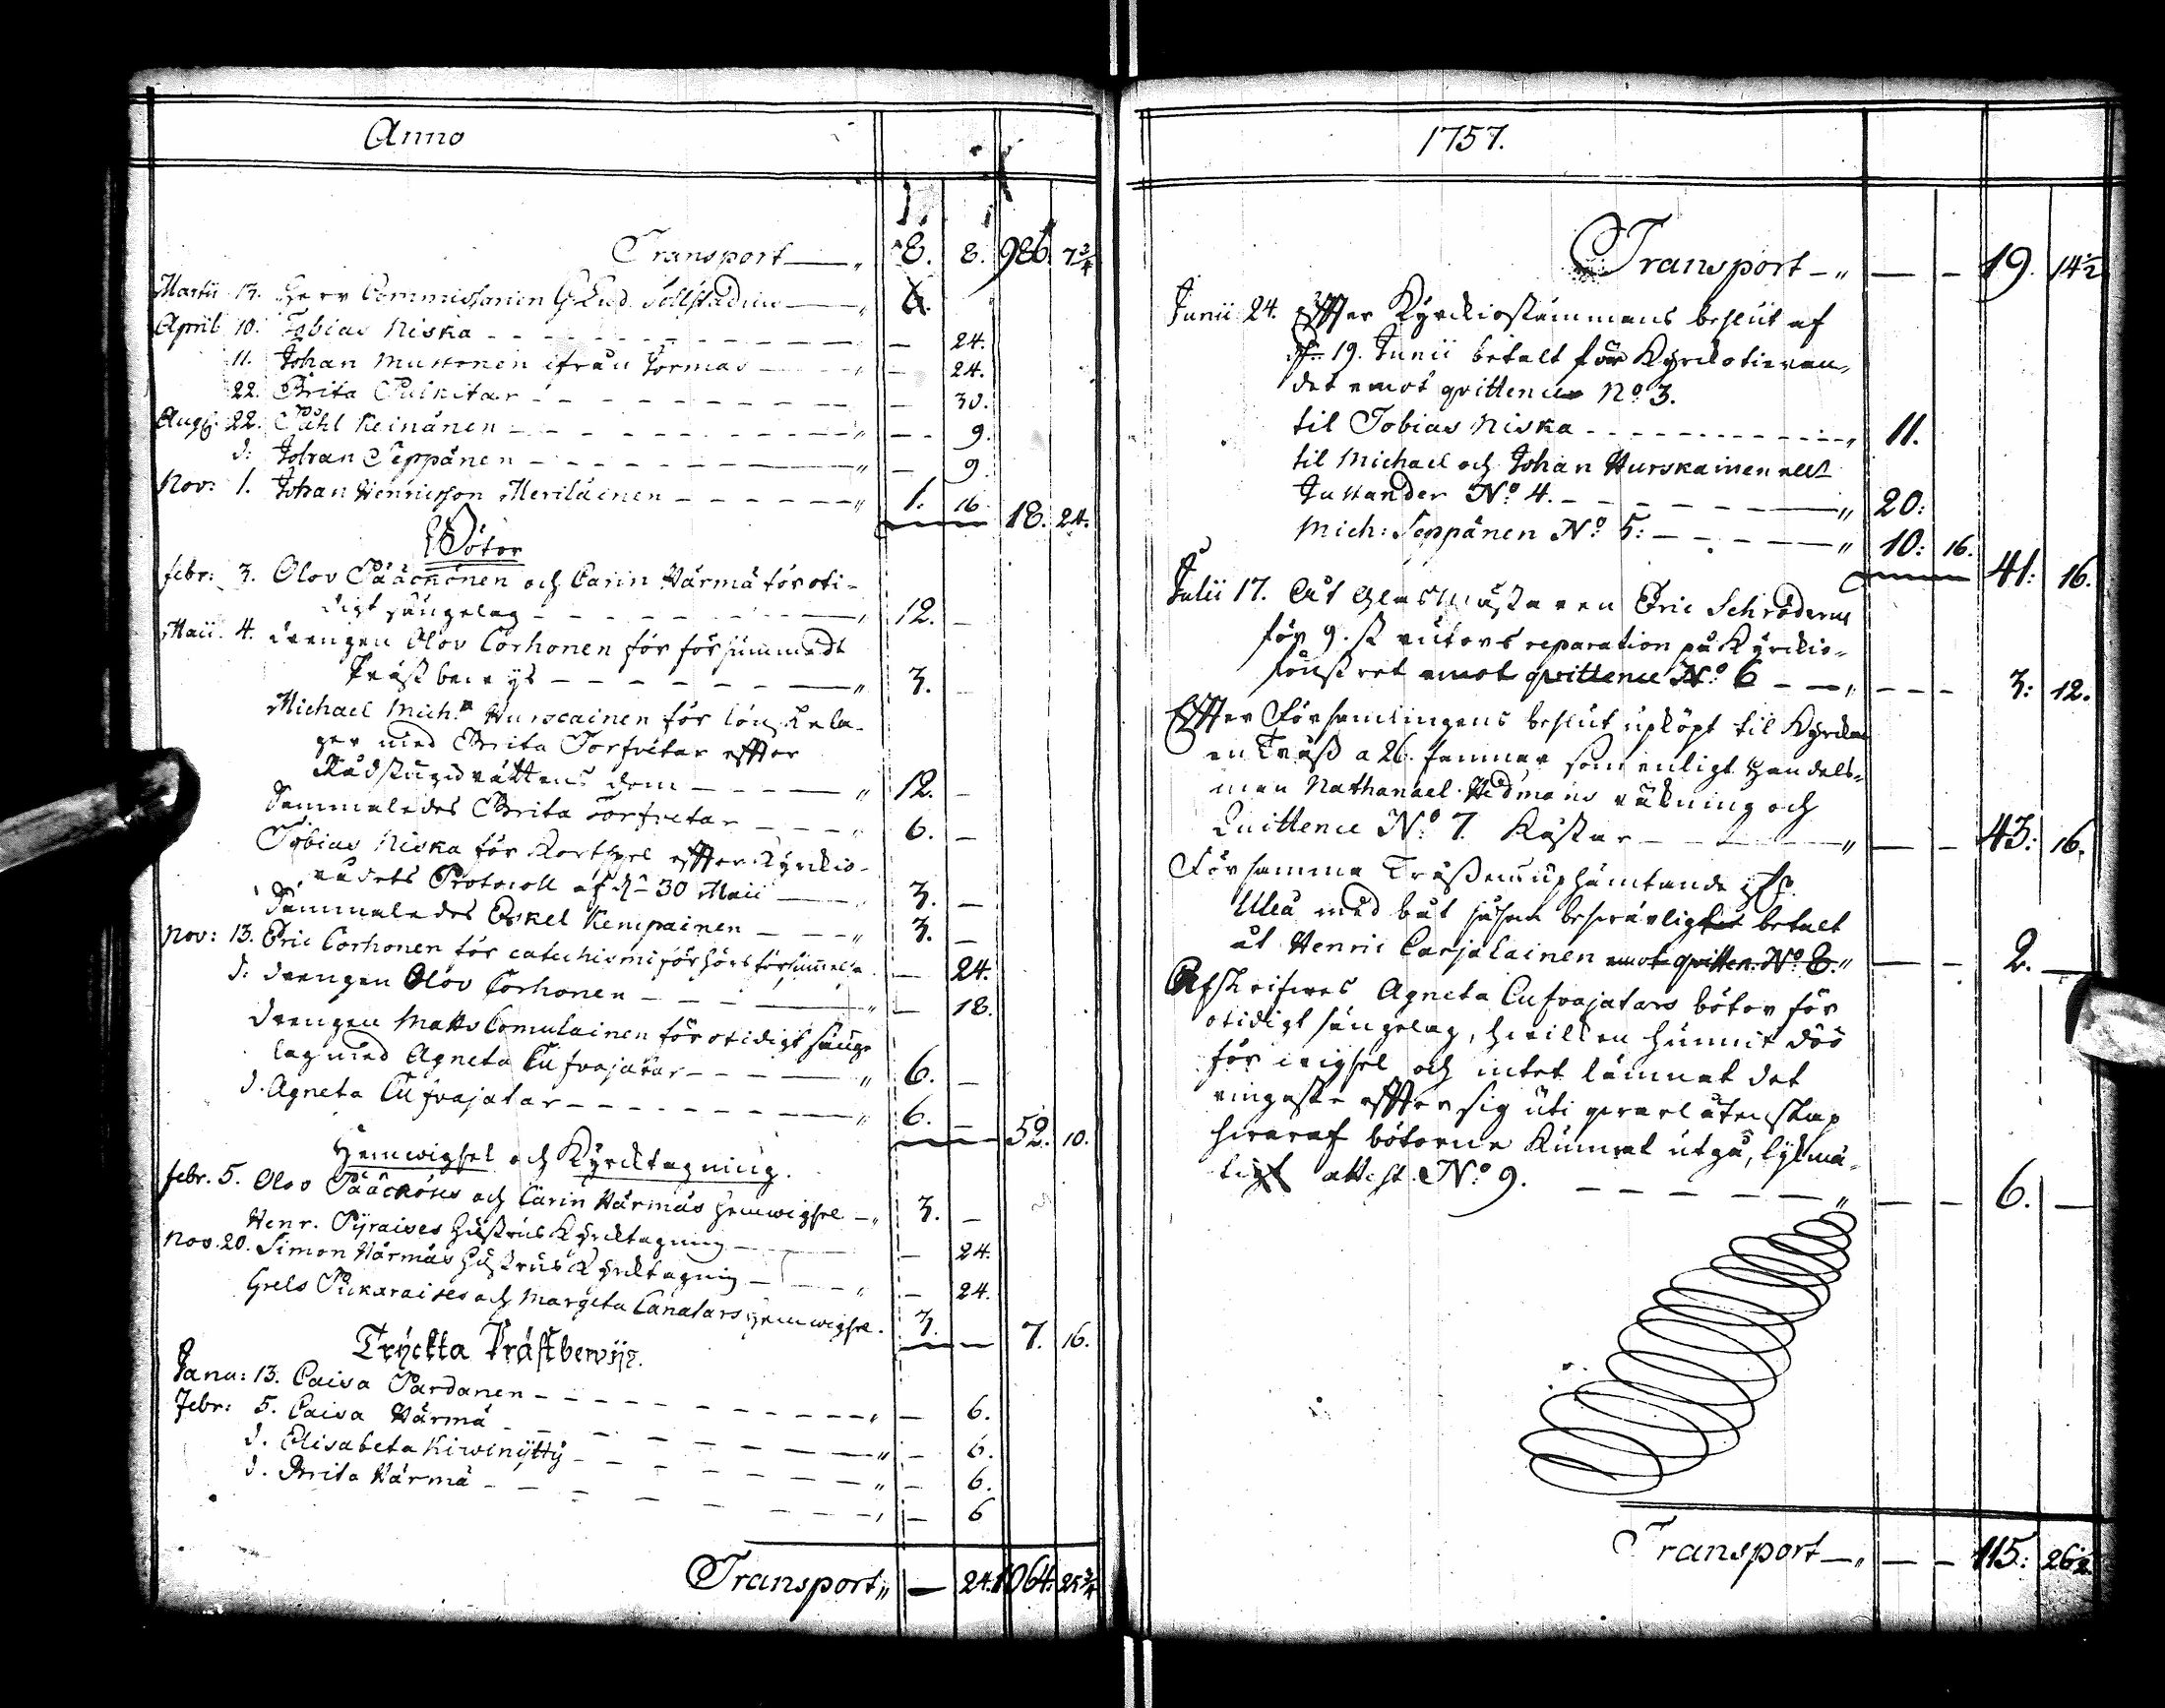 Anno
Transport — „ 8. 8. 986. 7 3/4
Martii 13. Herr Commissarien G. Lud. Sollstadius — „ 6.
April 10. Tobias Niska — — 24.
11. Johan Mustonen ifrån Sormas — — 24.
22. Brita Pulkitar — — 30.
Aug: 22. Påhl Keinänen — — 9.
d: Johan Seppänen — — 9.
Nov: 1. Johan Hennicsson Meriläinen — „ 1. 16. 18. 24.
Böter
Febr: 3. Olov Pääckönen och Carin Härmä för oti-
digt sängelag — 12. —
Maii. 4. Drengen Olov Corhonen för försummadt
Präst bewijs — „ 3. —
Michael Mich: Hurscainen för lönskela-
ger med Brita Torfvitar effter
Rådstugurättens dom — „ 12. —
Sammaledes Brita Torfvetar — „ 6. —
Tobias Niska för Kortspel effter Kyrckio-
rådets Protocoll af d: 30 Maii — 3. —
Sammaledes Eskel Kempainen — „ 3. —
Nov: 13. Eric Corhonen för catechismi förhörs försummelse — 24.
d: drengen Olov Corhonen — „ — 18.
Drengen Matts Comulainen för otidigt sänge
lag med Agneta Cufvajatar — „ 6. —
d. Agneta Cufvajatar — „ 6. — 52. 10.
Hemwigsel och Kyrcktagning.
Febr. 5. Olov Pääckönes och Carin Härmäs Hemwigsel — „ 3. —
Henr. Pyraises hustrus Kyrcktagning — — 24.
Nov. 20. Simon Härmäs hustrus Kyrcktagning — „ — 24.
Grels Pukaraises och Margeta Canatars Hemwigsel. 3. — 7. 16.
Tryckta Prästbewijs.
Janu: 13. Caisa Pardanen — „ — 6.
Febr: 5. Caisa Härmä — „ — 6.
d. Elisabeta Kiwinytty — „ — 6.
d. Brita Härmä — „ — 6
Transport „ — 24. 1064. 25 3/4
1757.
Transport — „ — — 19. 14 1/2
Junii 24. Effter Kyrckiostämmans beslut af
d: 19. Junii betalt för Kyrckotieran-
det emot qvittence No 3.
til Tobias Niska — „ 11.
til Michael och Johan Hurskainen
Justander No 4. — „ 20:
Mich: Seppänen No 5: — „ 10: 16. 41: 16.
Julii 17. Åt Glasmästaren Eric Schroderus
för 9. st rutors reparation på Kyrckio-
fönstret emot qvittence No 6 — „ — 3: 12.
Effter Församlingens beslut upköpt til Kyrckan
en Träss a 26. famnar som enligt Handels-
man Nathanael Hedmans räkning och
Quittence No 7. Kostar — „ — — 43: 16.
För samma Trässens uphämtande
Uleå med båt betalt
åt Henric Carjalainen emot qvitten. No 8. „ — — 2. —
Afskrifwes Agneta Cufvajatars böter för
otidigt sängelag, hwilken hunnit döö
för wigsel och intet lämnat det
ringaste effter sig uti qwarlåtenskap
hwaraf böterne kunnat utgå, lijkmä-
tigt attest. No 9. — „ — — 6. —
Transport — „ — — 115: 26 1/2